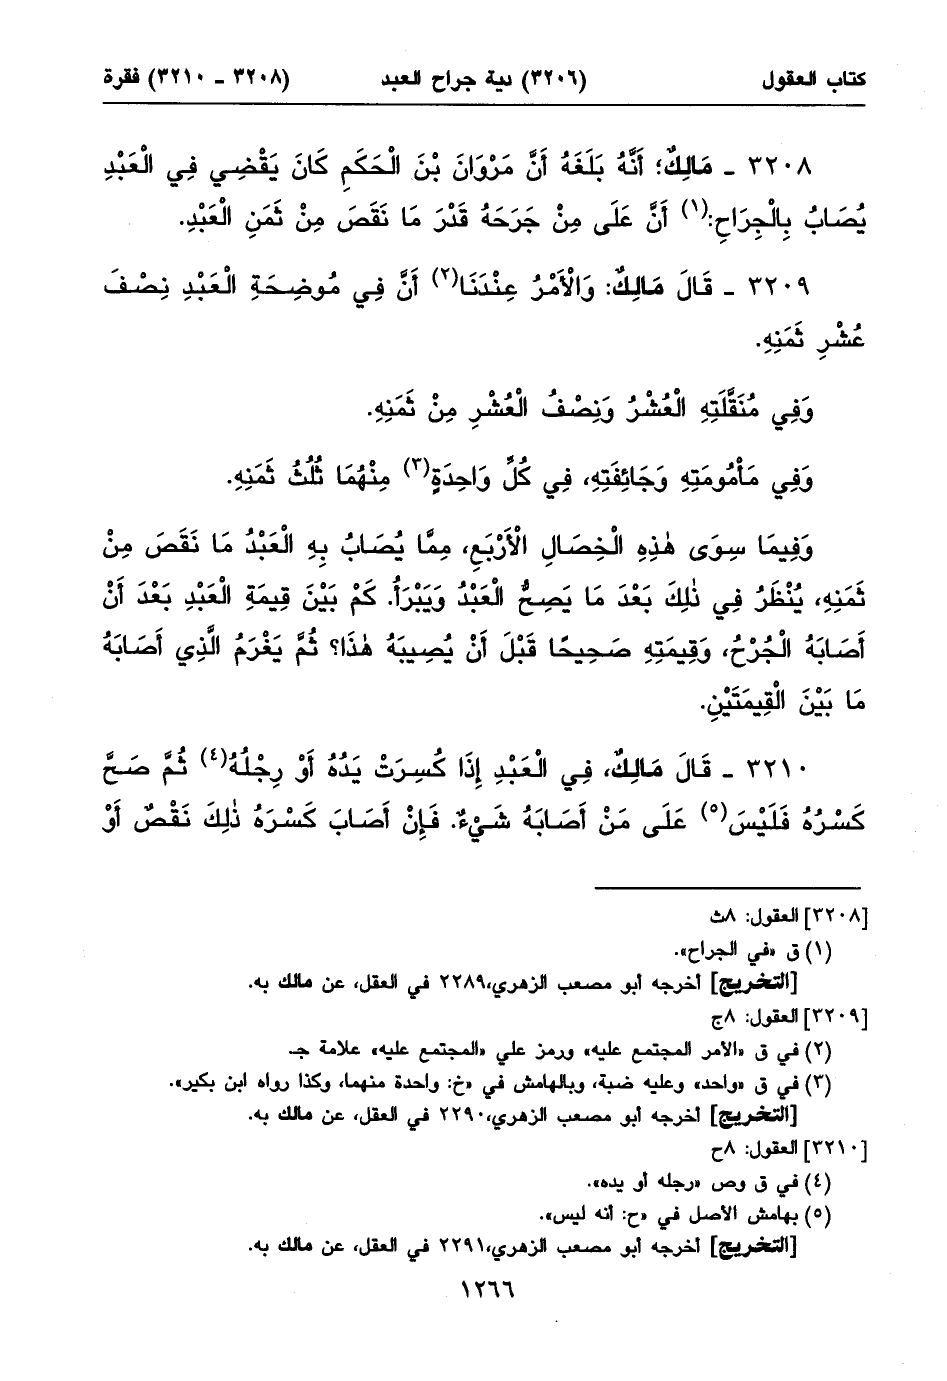 كتاب العقول (٣٢٠٦) دية جراح العبد (٣٢٠٨ - ٣٢١٠) فقرة
٣٢٠٨ - مَالِكٌ؛ أَنَّهُ بَلَغَهُ أَنَّ مَرْوَانَ بْنَ الْحَكَمِ كَانَ يَقْضِي فِي الْعَبْدِ
يُصَابُ بِالْجِرَاحِ:(١) أَنَّ عَلَى مِنْ جَرَحَهُ قَدْرَ مَا نَقَصَ مِنْ ثَمَنِ الْعَبْدِ.
٣٢٠٩ - قَالَ مَالِكٌ: وَالْأَمْرُ عِنْدَنَا(٢) أَنَّ فِي مُوضِحَةِ الْعَبْدِ نِصْفَ
عُشْرِ ثَمَنِهِ.
وَفِي مُنَقَّلَتِهِ الْعُشْرُ وَنِصْفُ الْعُشْرِ مِنْ ثَمَنِهِ.
وَفِي مَأْمُومَتِهِ وَجَائِفَتِهِ، فِي كُلِّ وَاحِدَةٍ(٣) مِنْهُمَا ثُلُثُ ثَمَنِهِ.
وَفِيمَا سِوَى هٰذِهِ الْخِصَالِ الْأَرْبَعِ، مِمَّا يُصَابُ بِهِ الْعَبْدُ مَا نَقَصَ مِنْ
ثَمَنِهِ، يُنْظَرُ فِي ذٰلِكَ بَعْدَ مَا يَصِحُّ الْعَبْدُ وَيَبْرَأُ. كَمْ بَيْنَ قِيمَةِ الْعَبْدِ بَعْدَ أَنْ
أَصَابَهُ الْجُرْحُ، وَقِيمَتِهِ صَحِيحًا قَبْلَ أَنْ يُصِيبَهُ هٰذَا؟ ثُمَّ يَغْرَمُ الَّذِي أَصَابَهُ
مَا بَيْنَ الْقِيمَتَيْنِ.
٣٢١٠ - قَالَ مَالِكٌ، فِي الْعَبْدِ إِذَا كُسِرَتْ يَدُهُ أَوْ رِجْلُهُ(٤) ثُمَّ صَحَّ
كَسْرُهُ فَلَيْسَ(٥) عَلَى مَنْ أَصَابَهُ شَيْءٌ. فَإِنْ أَصَابَ كَسْرَهُ ذٰلِكَ نَقْصٌ أَوْ
[٣٢٠٨] العقول: ٨ث
(١) ق «في الجراح».
[التخريج] أخرجه أبو مصعب الزهري،٢٢٨٩ في العقل، عن مالك به.
[٣٢٠٩] العقول: ٨ج
(٢) في ق «الأمر المجتمع عليه» ورمز علي «المجتمع عليه» علامة جـ
(٣) في ق «واحد» وعليه ضبة، وبالهامش في «خ: واحدة منهما، وكذا رواه ابن بكير».
[التخريج] أخرجه أبو مصعب الزهري،٢٢٩٠ في العقل، عن مالك به.
[٣٢١٠] العقول: ٨ح
(٤) في ق وص «رجله أو يده».
(٥) بهامش الأصل في «ح: أنه ليس».
[التخريج] أخرجه أبو مصعب الزهري،٢٢٩١ في العقل، عن مالك به.
١٢٦٦